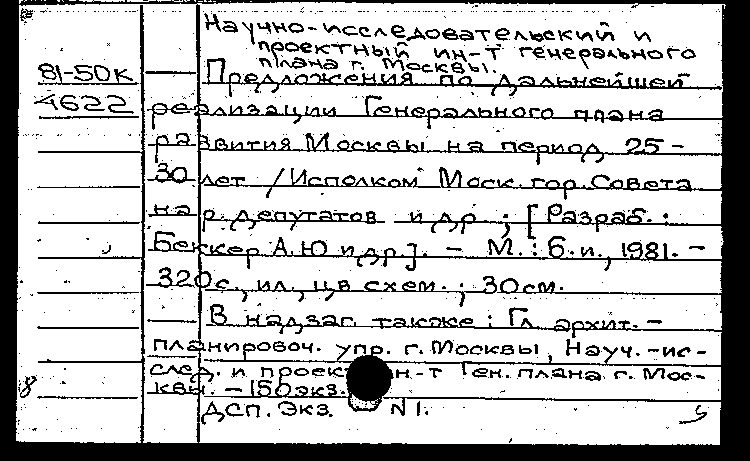 Научно-исследовательский и
проектный ин-т генерального
плана г. Москвы.
81-50к Предложения по дальнейшей
4622 реализации Генерального плана
развития Москвы на период 25-
30 лет / Исполком Моск. гор. Совета
нар. депутатов и др. ; [Разраб. :
Беккер А.Ю и др.]. - М. : б. и., 1981. -
320с., ил., цв схем. ; 30см.
В надзаг. также : Гл. архит.-
планировоч. упр. г. Москвы, Науч.-ис-
след. и проект. ин-т Ген. плана г. Мос-
квы. - 150экз.
8
ДСП. Экз. N1.